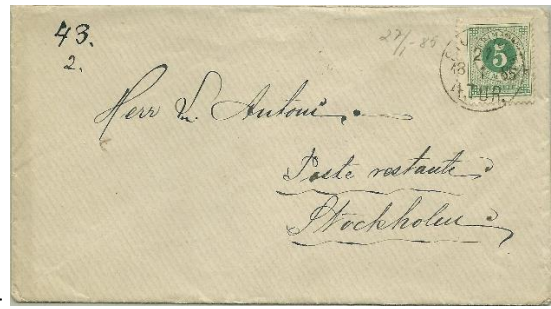 43.
2.
27/1-85
5
18 85
4.TUR.
Herr V. Antoni
Poste restante
Stockholm